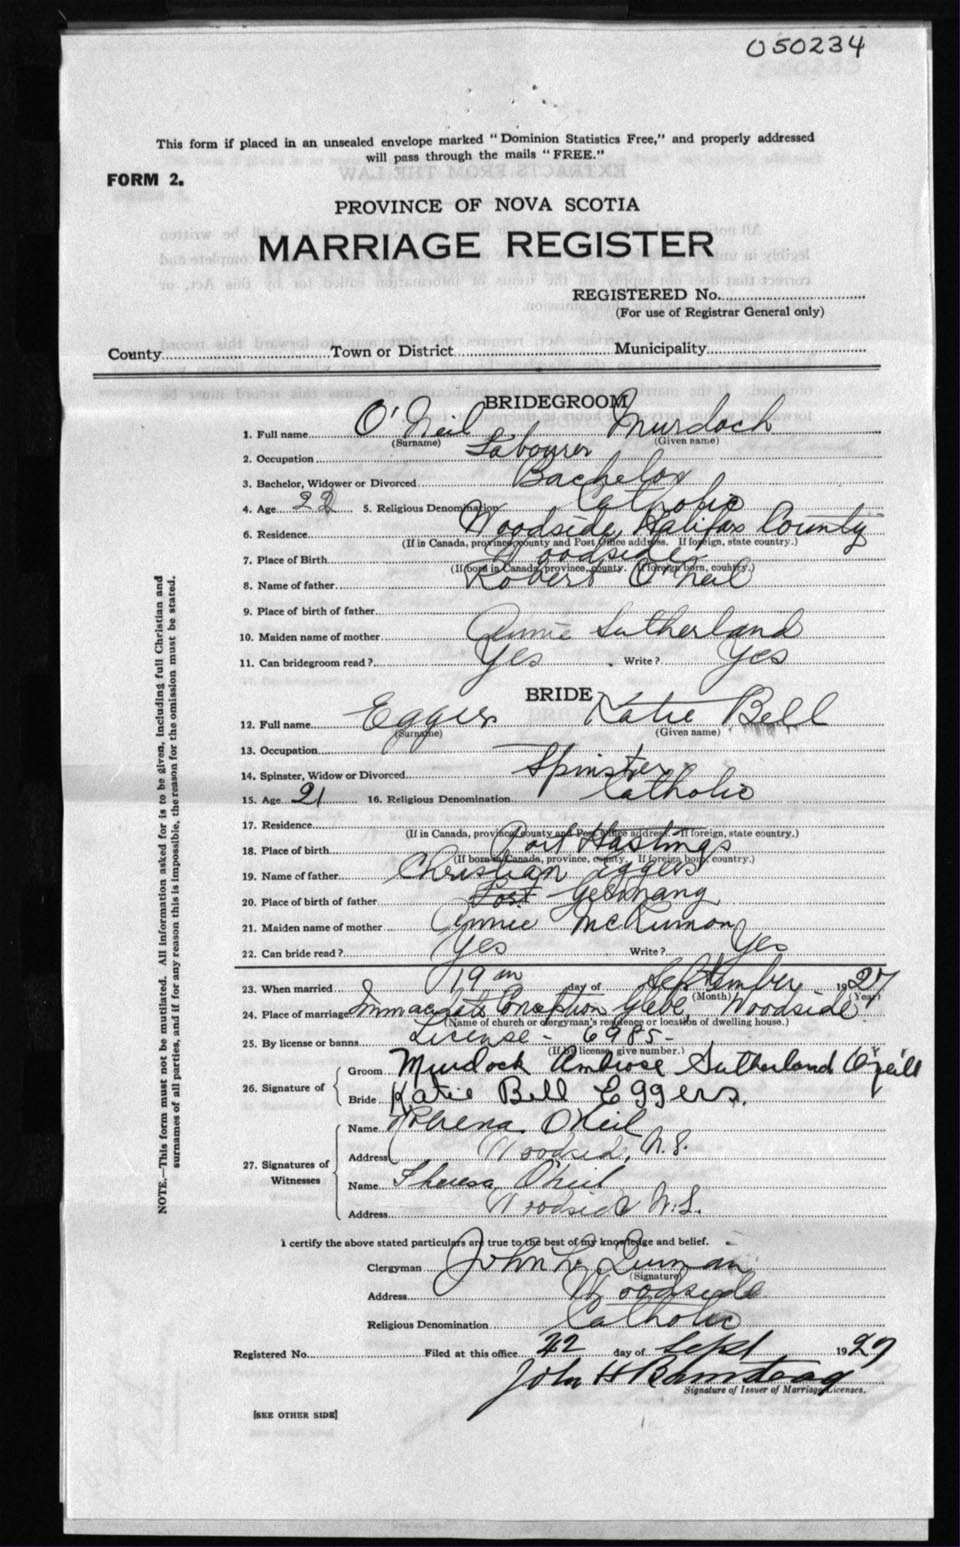 050234
This form if placed in an unsealed envelope marked "Dominion Statistics Free," and properly addressed
will pass through the mails "FREE."
FORM 2.
PROVINCE OF NOVA SCOTIA
MARRIAGE REGISTER
REGISTERED No.
(For use of Registrar General only)
County Town or District Municipality
BRIDEGROOM
1. Full name O'Neil Murdoch
(Surname) (Given name)
2. Occupation Labourer
3. Bachelor, Widower or Divorced Bachelor
4. Age 22 5. Religious Denomination Catholic
6. Residence Woodside, Halifax County
(If in Canada, province, county and Post Office address. If foreign, state country.)
7. Place of Birth Woodside
(If born in Canada, province, county. If foreign born, country.)
8. Name of father Robert O'Neil
9. Place of birth of father
10. Maiden name of mother Annie Sutherland
11. Can bridegroom read? Yes Write? Yes
BRIDE
12. Full name Eggers Katie Bell
(Surname) (Given name)
13. Occupation
14. Spinster, Widow or Divorced Spinster
15. Age 21 16. Religious Denomination Catholic
17. Residence
(If in Canada, province, county and Post Office address. If foreign, state country.)
18. Place of birth Port Hastings
(If born in Canada, province, county. If foreign born, country.)
19. Name of father Christian Eggers
20. Place of birth of father Port Germany
21. Maiden name of mother Annie McKinnon
22. Can bride read? Yes Write? Yes
23. When married 19th day of September 1927
(Month) (Year)
24. Place of marriage Immaculate Conception Glebe, Woodside
(Name of church or clergyman's residence or location of dwelling house.)
25. By license or banns License - 6985 -
(If by license, give number.)
26. Signature of Groom Murdoch Ambrose Sutherland O'Neill
Bride Katie Bell Eggers.
27. Signatures of Witnesses
Name Rhena O'Neil
Address Woodside, N.S.
Name Theresa O'Neil
Address Woodside N.S.
I certify the above stated particulars are true to the best of my knowledge and belief.
Clergyman John L.
(Signature)
Address Woodside
Religious Denomination Catholic
Registered No. Filed at this office 22 day of Sept 1927
John H
Signature of Issuer of Marriage Licenses.
[SEE OTHER SIDE]
NOTE.—This form must not be mutilated. All information asked for is to be given, including full Christian and
surnames of all parties, and if for any reason this is impossible, the reason for the omission must be stated.